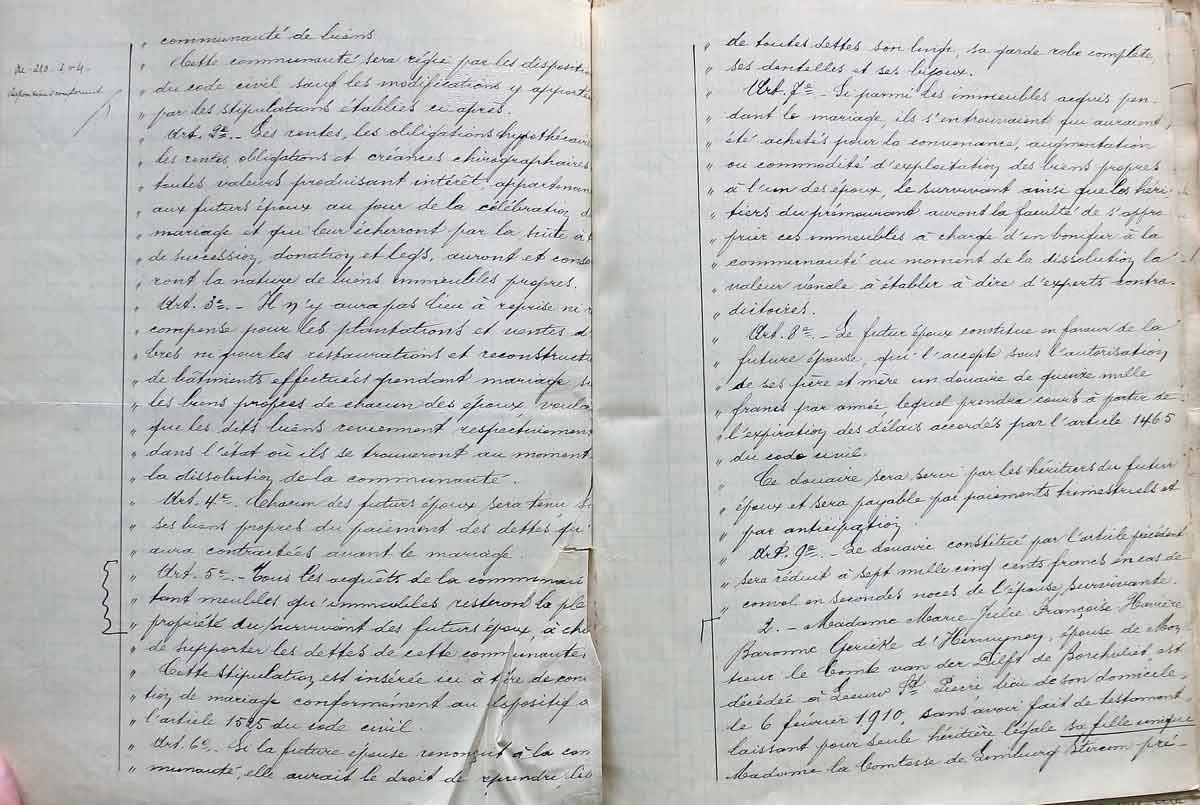 " communauté de biens
" Cette communauté sera régie par les dispositi
" du code civil sauf les modifications y apportée
" par les stipulations établies ci après.
" Art. 2e. - Les rentes, les obligations hypothécaire
" les rentes obligations et créances chirographaires
" toutes valeurs produisant intérêt appartenan
" aux futurs époux au jour de la célébration d
" mariage et qui leur écherront par la suite à t
" de succession, donation et legs, auront et conse
" ront la nature de biens immeubles propres.
" Art. 3e. - Il n'y aura pas lieu à reprise ni r
" compense pour les plantations et ventes d
" bres ni pour les restaurations et reconstruct
" de bâtiments effectuées pendant mariage su
" les biens propres de chacun des époux, voula
" que les dits biens reviennent respectivement
" dans l'état où ils se trouveront au moment
" la dissolution de la communauté.
" Art. 4e. - Chacun des futurs époux sera tenu su
" ses biens propres du paiement des dettes qu'
" aura contractées avant le mariage.
" Art. 5e. - Tous les acquêts de la communau
" tant meubles qu'immeubles resteront la ple
" propriété du survivant des futurs époux, à cha
" de supporter les dettes de cette communauté.
" Cette stipulation est insérée ici à titre de con
" tion de mariage conformément au dispositif d
" l'article 1525 du code civil.
" Art. 6e. Si la future épouse renonçait à la com
" munauté, elle aurait le droit de reprendre, les
" de toutes dettes son linge, sa garde robe complète,
" ses dentelles et ses bijoux.
" Art. 7e. - Si parmi les immeubles acquis pen-
" dant le mariage, ils s'en trouvaient qui auraient
" été achetés pour la convenance, augmentation
" ou commodité d'exploitation des biens propres
" à l'un des époux, le survivant ainsi que les héri-
" tiers du prémourant auront la faculté de s'appro
" prier ces immeubles à charge d'en bonifier à la
" communauté au moment de la dissolution la
" valeur vénale à établir à dire d'experts contra-
" dictoires.
" Art. 8e. - Le futur époux constitue en faveur de la
" future épouse, qui l'accepte sous l'autorisation
" de ses père et mère un douaire de quinze mille
" francs par année, lequel prendra cours à partir de
" l'expiration des délais accordés par l'article 1465
" du code civil.
" Ce douaire sera servi par les héritiers du futur
" époux et sera payable par paiements trimestriels et
" par anticipation.
" Art. 9e. - Le douaire constitué par l'article précédent
" sera réduit à sept mille cinq cents francs en cas de
" convol en secondes noces de l'épouse survivante.
2. - Madame Marie Julie Françoise Xavière
Baronne Gericke d'Herwynen, épouse de Mon-
sieur le Comte van der Dilft de Borchvliet, est
décédée à Leeuw St Pierre lieu de son domicile,
le 6 février 1910, sans avoir fait de testament
laissant pour seule héritière légale sa fille unique
Madame la Comtesse de Limburg Stirum pré-